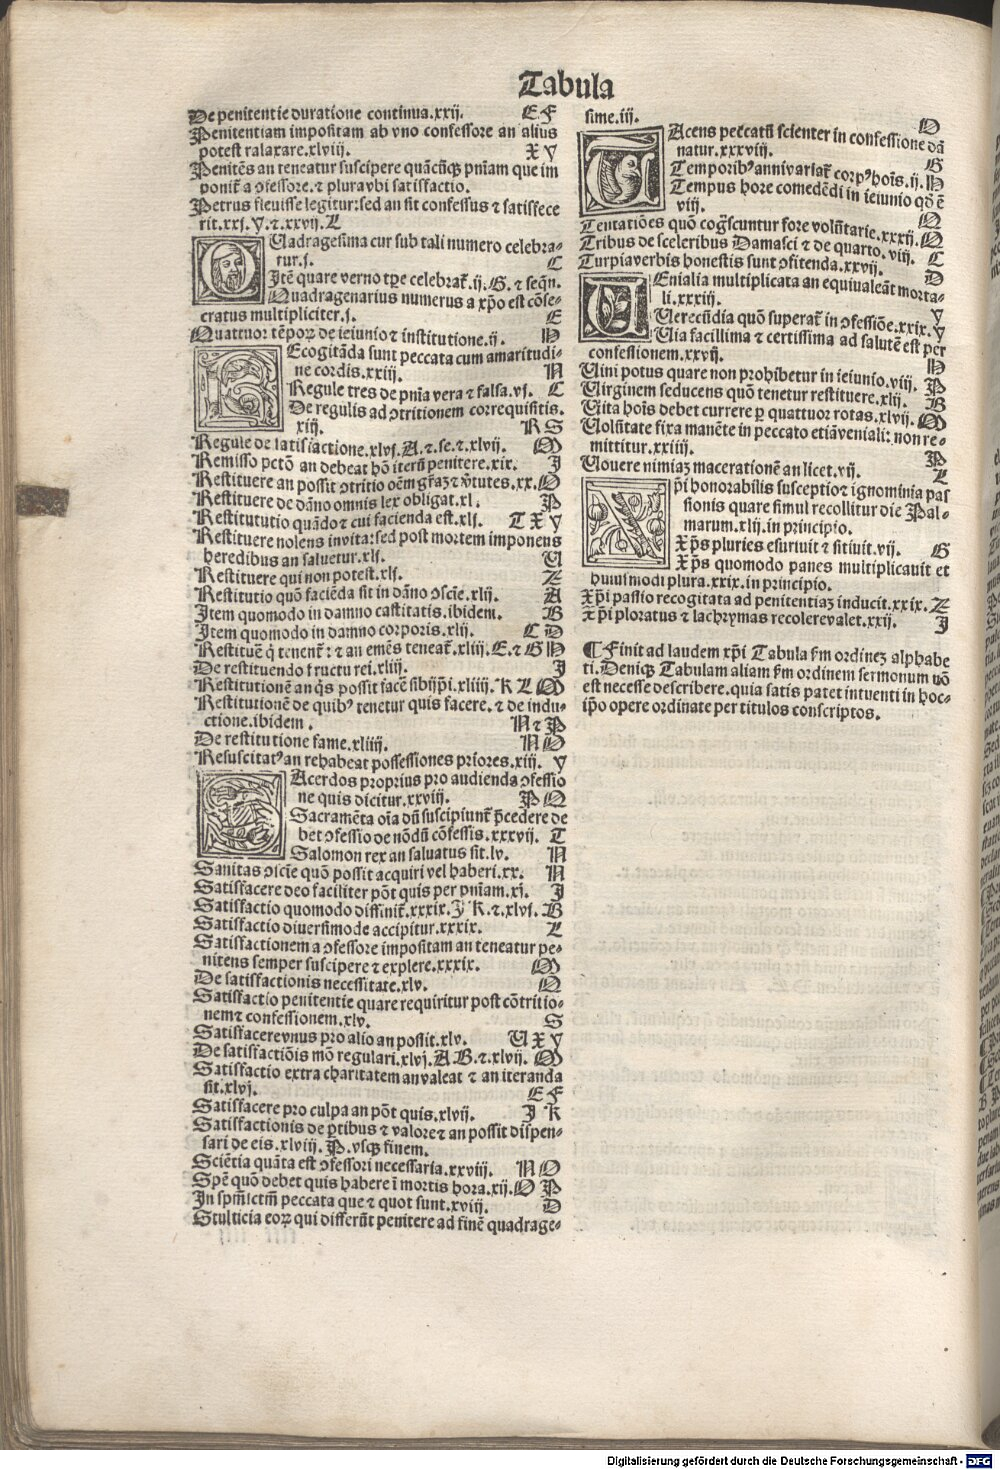 Tabula
De penitentie duratione continua.xxij. E F
Penitentiam impositam ab vno confessore an alius
potest ralaxare.xlviij. X Y
Penitēs an teneatur suscipere quācūq̄ pniam que im
ponit̄ a ↄfessore.⁊ plura vbi satisfactio.
Petrus fleuisse legitur:sed an sit confessus ⁊ satisfece
rit.xxj.V.⁊.xxvij.Z
QUadragesima cur sub tali numero celebra-
tur.j. C
Itē quare verno tp̄e celebrat̄.ij.G.⁊ seqn̄.
Quadragenarius numerus a xp̄o est cōse-
cratus multipliciter.j. E
Quattuor tēpoꝝ de ieiunio ⁊ institutione.ij. H
REcogitāda sunt peccata cum amaritudi-
ne cordis.xxiij. N
Regule tres de pnia vera ⁊ falsa.vj. C
De regulis ad ↄtritionem correquisitis.
xiij. R S
Regule de satisfactione.xlvj.A.⁊.se.⁊.xlvij. M
Remisso pctō an debeat hō iterū penitere.xix. I
Restituere an possit ↄtritio oēm gr̄az ⁊ v̄tutes.xx.O
Restituere de dāno omnis lex obligat.xl. P
Restitututio quādo ⁊ cui facienda est.xlj. T X Y
Restituere nolens in vita:sed post mortem imponens
heredibus an saluetur.xlj. U
Restituere qui non potest.xlj. Z
Restitutio quō faciēda sit in dāno ↄscie.xlij. A
Item quomodo in damno castitatis.ibidem. B
Item quomodo in damno corporis.xlij. C D
Restituē q̄ tenent̄:⁊ an emēs teneat̄.xliij.E.⁊ G H
De restituendo fructu rei.xliij. I
Restitutionē an q̄s possit facē sibijp̄i.xliiij.K L M
Restitutionē de quibꝰ tenetur quis facere.⁊ de indu-
ctione.ibidem. N ⁊ P
De restitutione fame.xliiij. N O
Resuscitatꝰ an rehabeat possessiones priores.xiij. V
SAcerdos proprius pro audienda ↄfessio
ne quis dicitur.xxviij. P Q
Sacramēta oīa dū suscipiunt̄ p̄cedere de
bet ↄfessio de nōdū cōfessis.xxxvij. T
Salomon rex an saluatus sit.lv. N
Sanitas ↄscie quō possit acquiri vel haberi.xx. N
Satisfacere deo faciliter pōt quis per pniam.xj. I
Satisfactio quomodo diffinit̄.xxxix.I K.⁊.xlvj. B
Satisfactio diuersimode accipitur.xxxix. L
Satisfactionem a ↄfessore impositam an teneatur pe-
nitens semper suscipere ⁊ explere.xxxix. M
De satisfactionis necessitate.xlv. Q
Satisfactio penitentie quare requiritur post cōtritio-
nem⁊ confessionem.xlv. S
Satisfacere vnus pro alio an possit.xlv. U X Y
De satisfactiōis mō regulari.xlvj.A B.⁊.xlvij. M
Satisfactio extra charitatem an valeat ⁊ an iteranda
sit.xlvj. E F
Satisfacere pro culpa an pōt quis.xlvij. I K
Satisfactionis de p̄tibus ⁊ valore ⁊ an possit dispen-
sari de eis.xlviij. P.vsq̄ finem.
Sciētia quāta est ↄfessori necessaria.xxviij. N O
Spē quō debet quis habere ī mortis hora.xij.O P
In spm̄sctm̄ peccata que ⁊ quot sunt.xviij. D
Stulticia eoꝝ qui differūt penitere ad finē quadrage-
sime.iij. O
TAcens peccatū scienter in confessione dā
natur.xxxviij. G
Temporibꝰ anniuariat̄ corpꝰ hoīs.ij.H
Tempus hore comedēdi in ieiunio qd̄ ē
viij. Q
Tentatiōes quō coḡscuntur fore volūtarie.xxxij.Q
Tribus de sceleribus Damasci ⁊ de quarto.viij. C
Turpia verbis honestis sunt ↄfitenda.xxvij. D
UEnialia multiplicata an equiualeāt morta-
li.xxxiij. V
Uerecūdia quō superat̄ in ↄfessiōe.xxix.V
Uia facillima ⁊ certissima ad salutē est per
confessionem.xxvij. H
Uini potus quare non prohibetur in ieiunio.viij. P
Uirginem seducens quō tenetur restituere.xlij. B
Uita hoīs debet currere p̄ quattuor rotas.xlvij. M
Uolūtate fixa manēte in peccato etiā veniali:non re-
mittitur.xxiiij. P
Uouere nimiaz macerationē an licet.vij. L
Xp̄i honorabilis susceptio ⁊ ignominia pas
sionis quare simul recollitur die Pal-
marum.xlij.in principio.
Xp̄s pluries esuriuit ⁊ sitiuit.vij. G
Xp̄s quomodo panes multiplicauit et
huiusmodi plura.xxix.in principio.
Xp̄i passio recogitata ad penitentiaz inducit.xxix.Z
Xp̄i ploratus ⁊ lachrymas recolere valet.xxij. I
¶ Finit ad laudem xp̄i Tabula s̄m ordinez alphabe
ti. Deniq̄ Tabulam aliam s̄m ordinem sermonum nō
est necesse describere.quia satis patet intuenti in hoc-
ip̄o opere ordinate per titulos conscriptos.
Digitalisierung gefördert durch die Deutsche Forschungsgemeinschaft - DFG